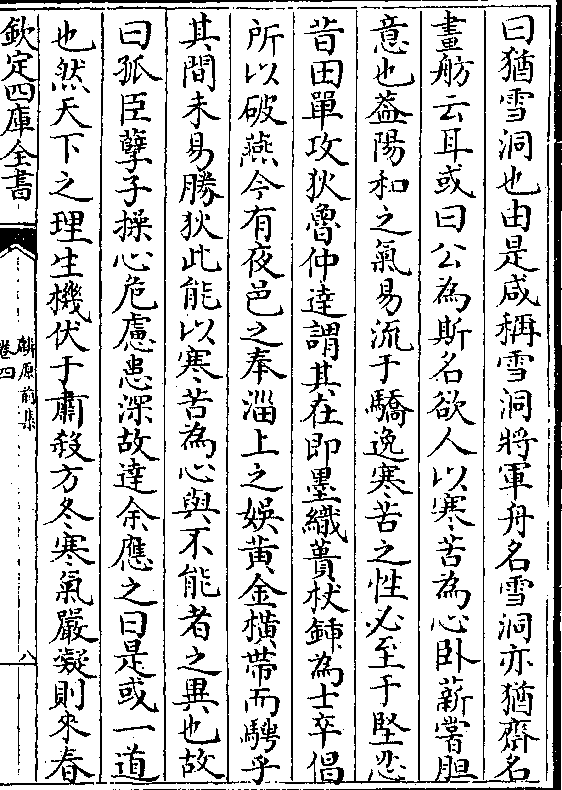 曰猶雪洞也由是咸稱雪洞將軍舟名雪洞亦猶齋名
畫舫云耳或曰公為斯名欲人以寒苦為心卧薪嘗胆
意也葢陽和之氣易流于驕逸寒苦之性必至于堅忍
昔田單攻狄魯仲逹謂其在即墨織蕢杖鍤為士卒倡
所以破燕今有夜邑之奉淄上之娱黄金橫帶而騁乎
其間未易勝狄此能以寒苦為心與不能者之異也故
曰孤臣孽子操心危慮患深故達余應之曰是或一道
也然天下之理生機伏于肅殺方冬寒氣嚴凝則來春
欽定四庫全書
麟原前集
卷四
八